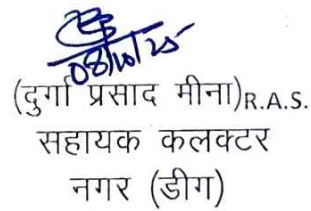 08/10/25
(दुर्गा प्रसाद मीना)R.A.S.
सहायक कलक्टर
नगर (डीग)